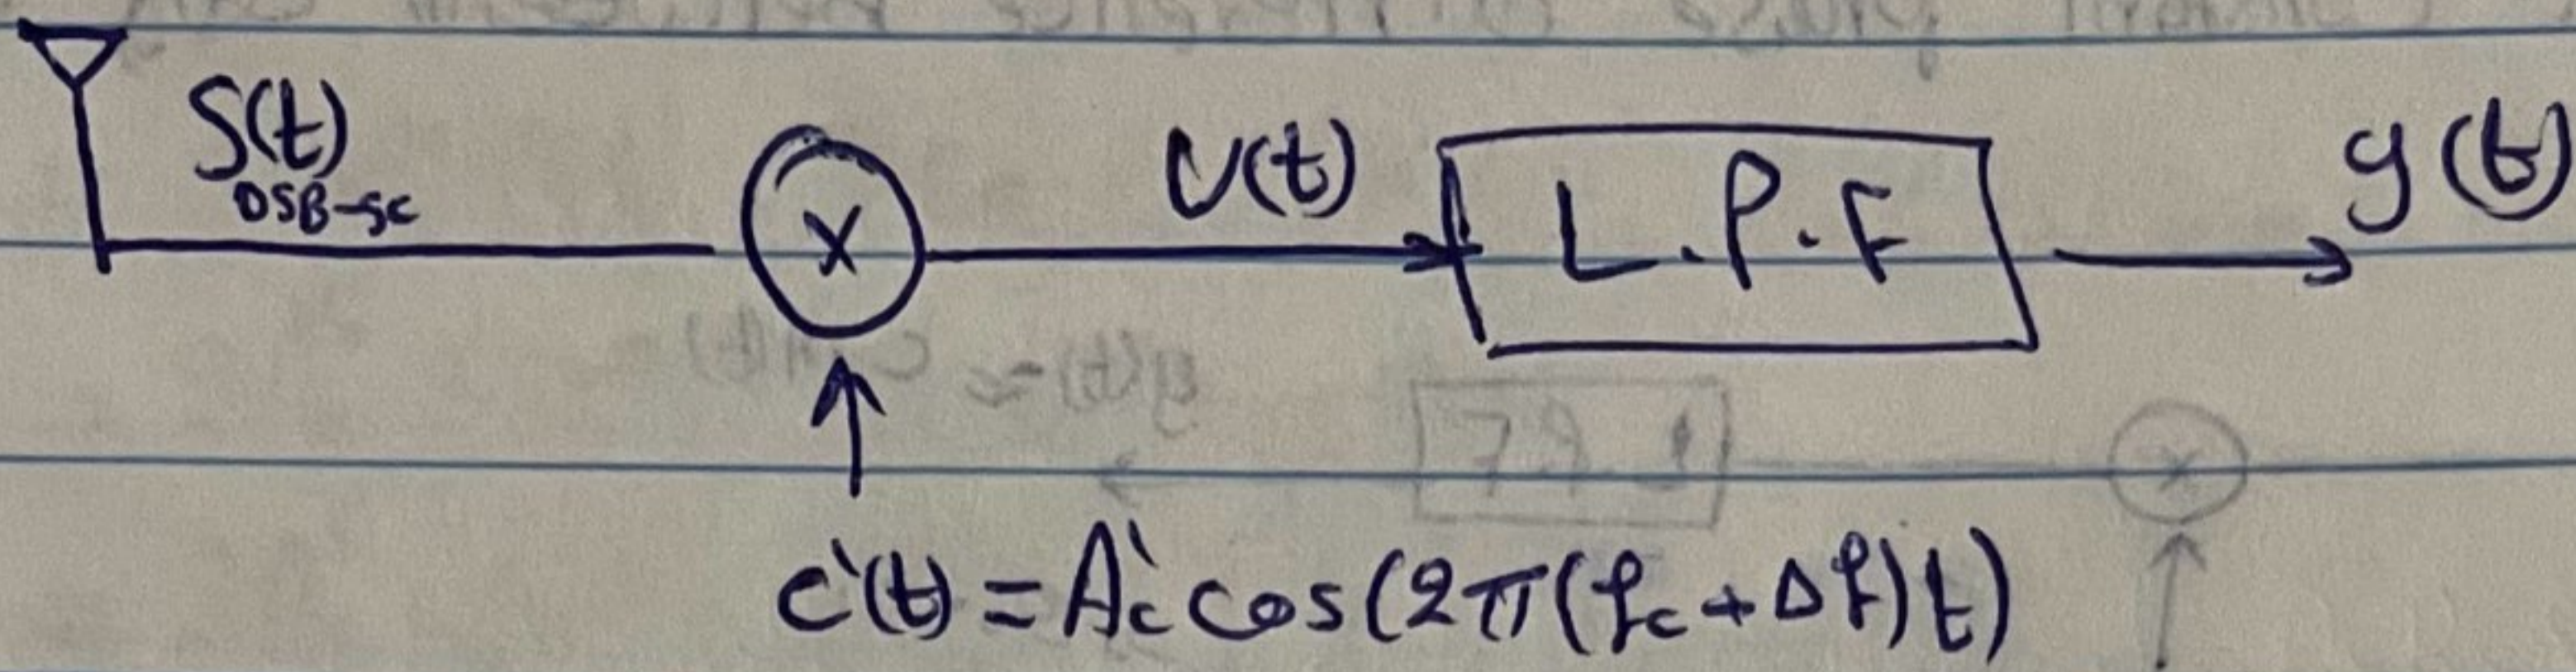 S(t) DSB-SC
X
V(t)
L.P.F
y(t)
c'(t) = A'c cos(2π(fc + Δf)t)